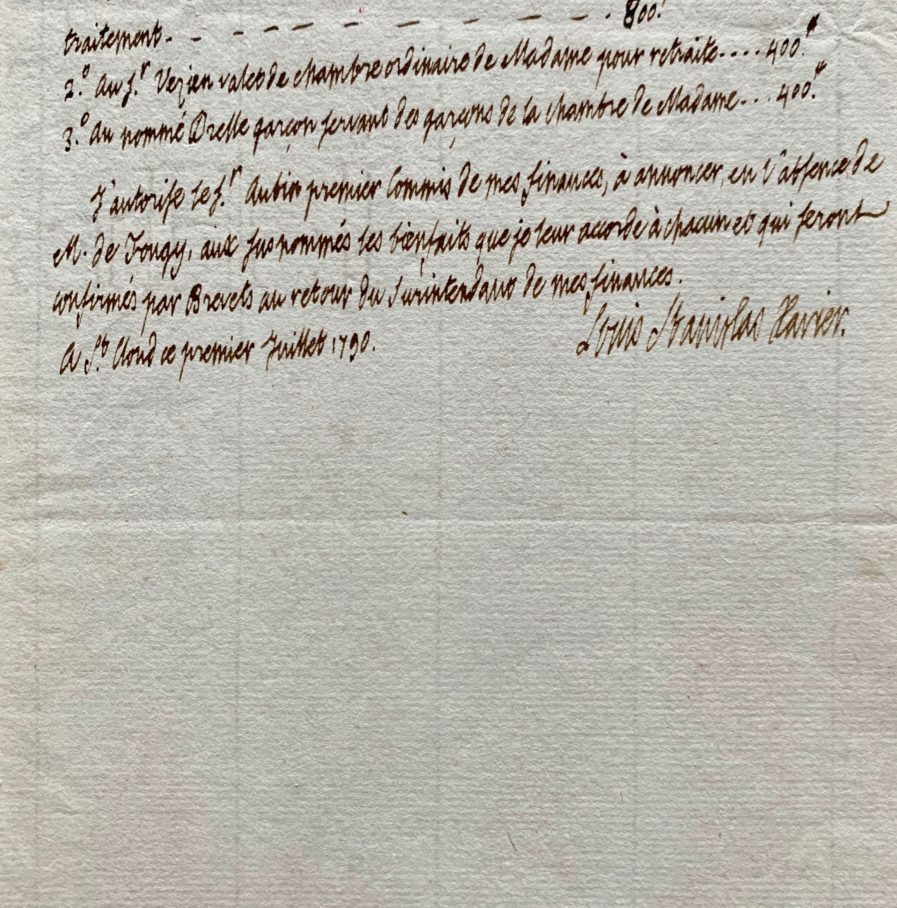 traitement - - - - - - - - - - - 800.ᵗ
2.º Au S.ʳ Vezien valet de chambre ordinaire de Madame pour retraite.... 400.ᵗ
3.º au nommé Dresle garçon servant des garçons de la chambre de Madame... 400.ᵗ
J'autorise le S.ʳ Aubin premier Commis de mes finances, à annoncer, en l'absence de
M. de Fougy, aux susnommés les bienfaits que je leur accorde à chacun et qui seront
confirmés par Brevets au retour du Surintendant de mes finances.
A S.ᵗ Cloud ce premier Juillet 1790.
Louis Stanislas Xavier.